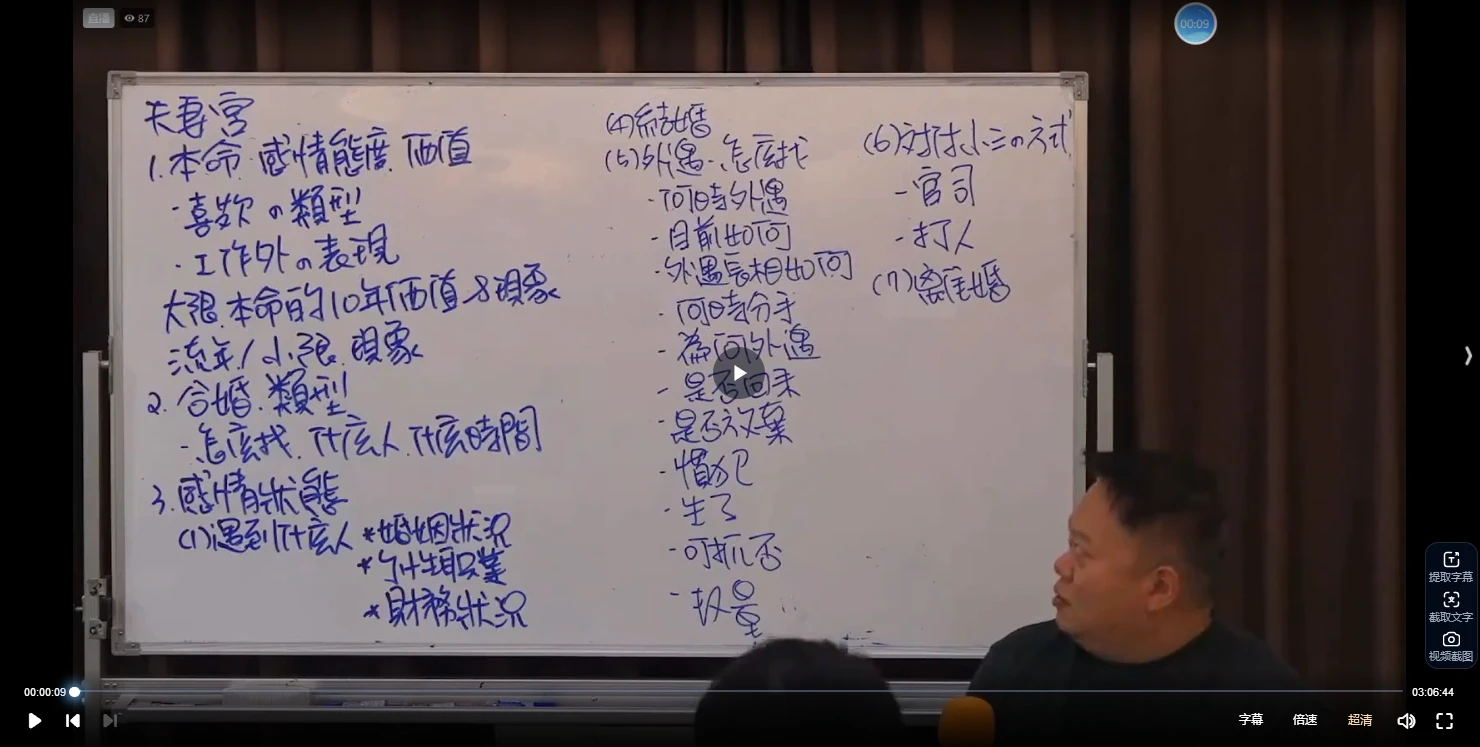 直播
87
00:09
夫妻宮
1. 本命 感情態度.価值
·喜欢の類型
·工作外の表現
大限.本命的10年価值&現象
流年/小限.現象
2. 合婚.類型
-怎広找.什広人.什広時間
3.感情狀態
(1)遇到什広人 *婚姻狀況
*個性職業
*財務狀況
(4)結婚
(5)外遇.怎広找
-何時外遇
-目前如何
·外遇長相如何
-何時分手
-為何外遇
-是否回來
-是否放棄
-慣犯
-生了
-可抓否
-数量
(6)対付小三の方式
-官司
-打人
(7)離婚
提取字幕
截取文字
视频截图
00:00:09
03:06:44
字幕
倍速
超清